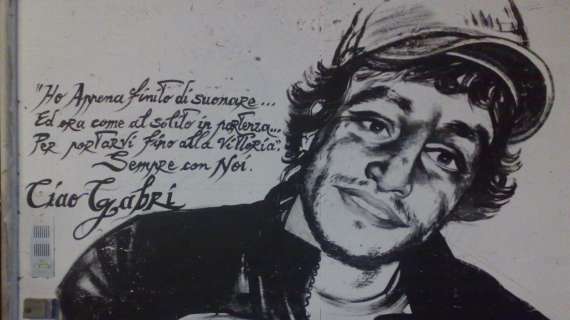 "Ho Appena finito di suonare...
Ed ora come al solito in partenza...
Per portarvi fino alla vittoria".
Sempre con Noi.
Ciao Gabri